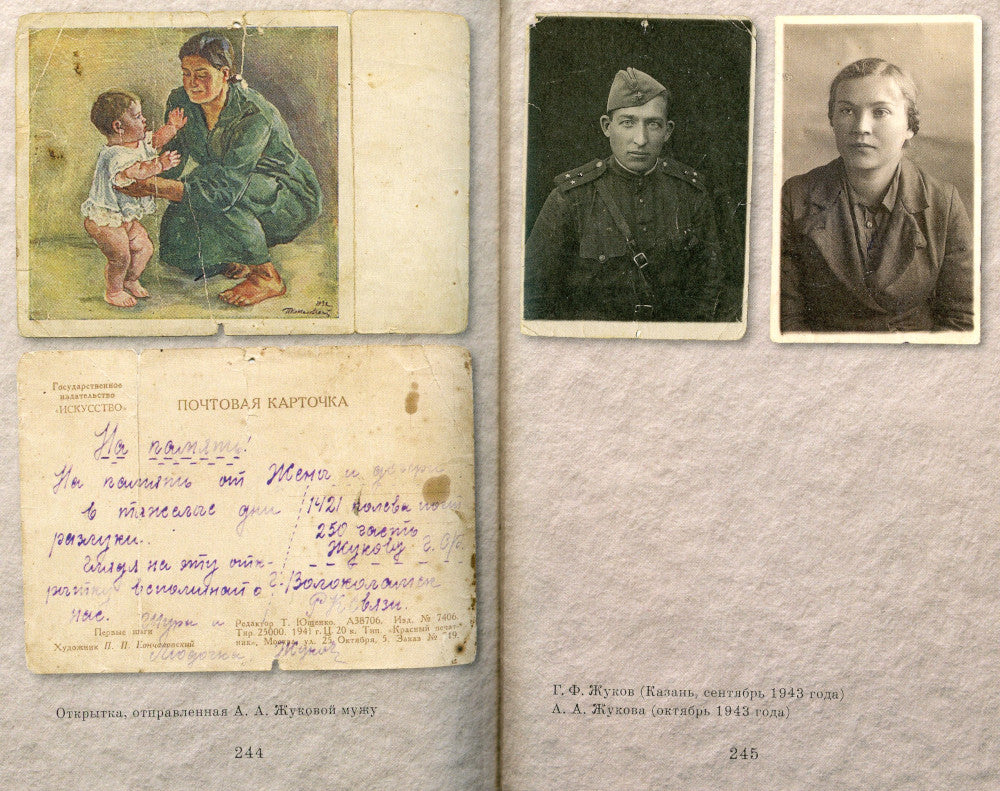 Государственное
издательство
«ИСКУССТВО»
ПОЧТОВАЯ КАРТОЧКА
На память!
На память от Жены и
в тяжелые дни
разлуки..
Глядя на эту отк-
рытку вспоминай о
нас.
1421 полева
250 часть
Жукову Г.
г. Волоколамск
Связи.
Шура и
Людочка Жуков
Первые шаги
Художник П. П. Кончаловский
Редактор Т. Ющенко. А38706. Изд. № 7406.
Тир. 25000. 1941 г. Ц. 20 к. Тип. «Красный печат-
ник», Москва, ул. 25 Октября, 5. Заказ № 19.
Открытка, отправленная А. А. Жуковой мужу
244
Г. Ф. Жуков (Казань, сентябрь 1943 года)
А. А. Жукова (октябрь 1943 года)
245